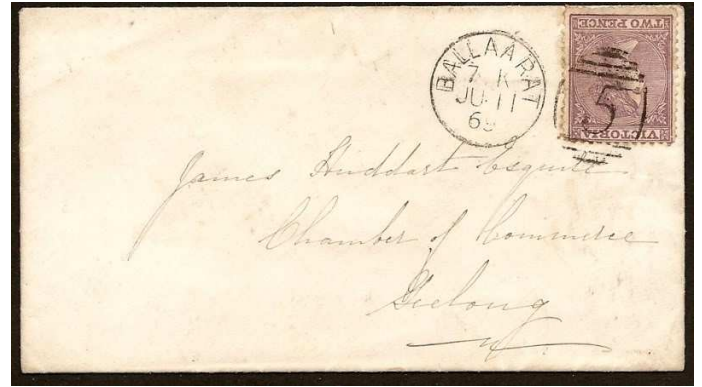 BALLAARAT
7 K
JU 11
69
TWO PENCE
5
VICTORIA
James Huddart Esquire
Chamber of Commerce
Geelong